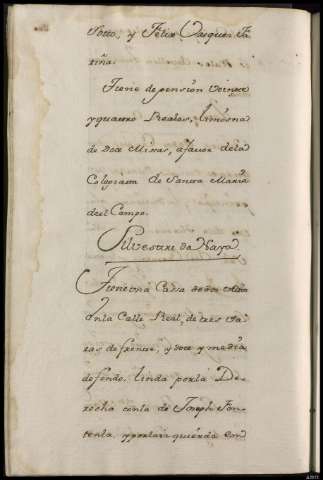 Sotto, y Felix Vazquez Fa
riña.
Tiene de pensión Veinte
y quatro Reales, limosna
de doze Misas, a favor de la
Colegiata de Santa Maria
del Campo.
Silvestre da Naya
Tiene una Casa de
en la Calle Real, de tres Va
ras de frente, y doze y media
de fondo. linda por la De
recha con la de Joseph Fon
tenla, y por la izquierda con